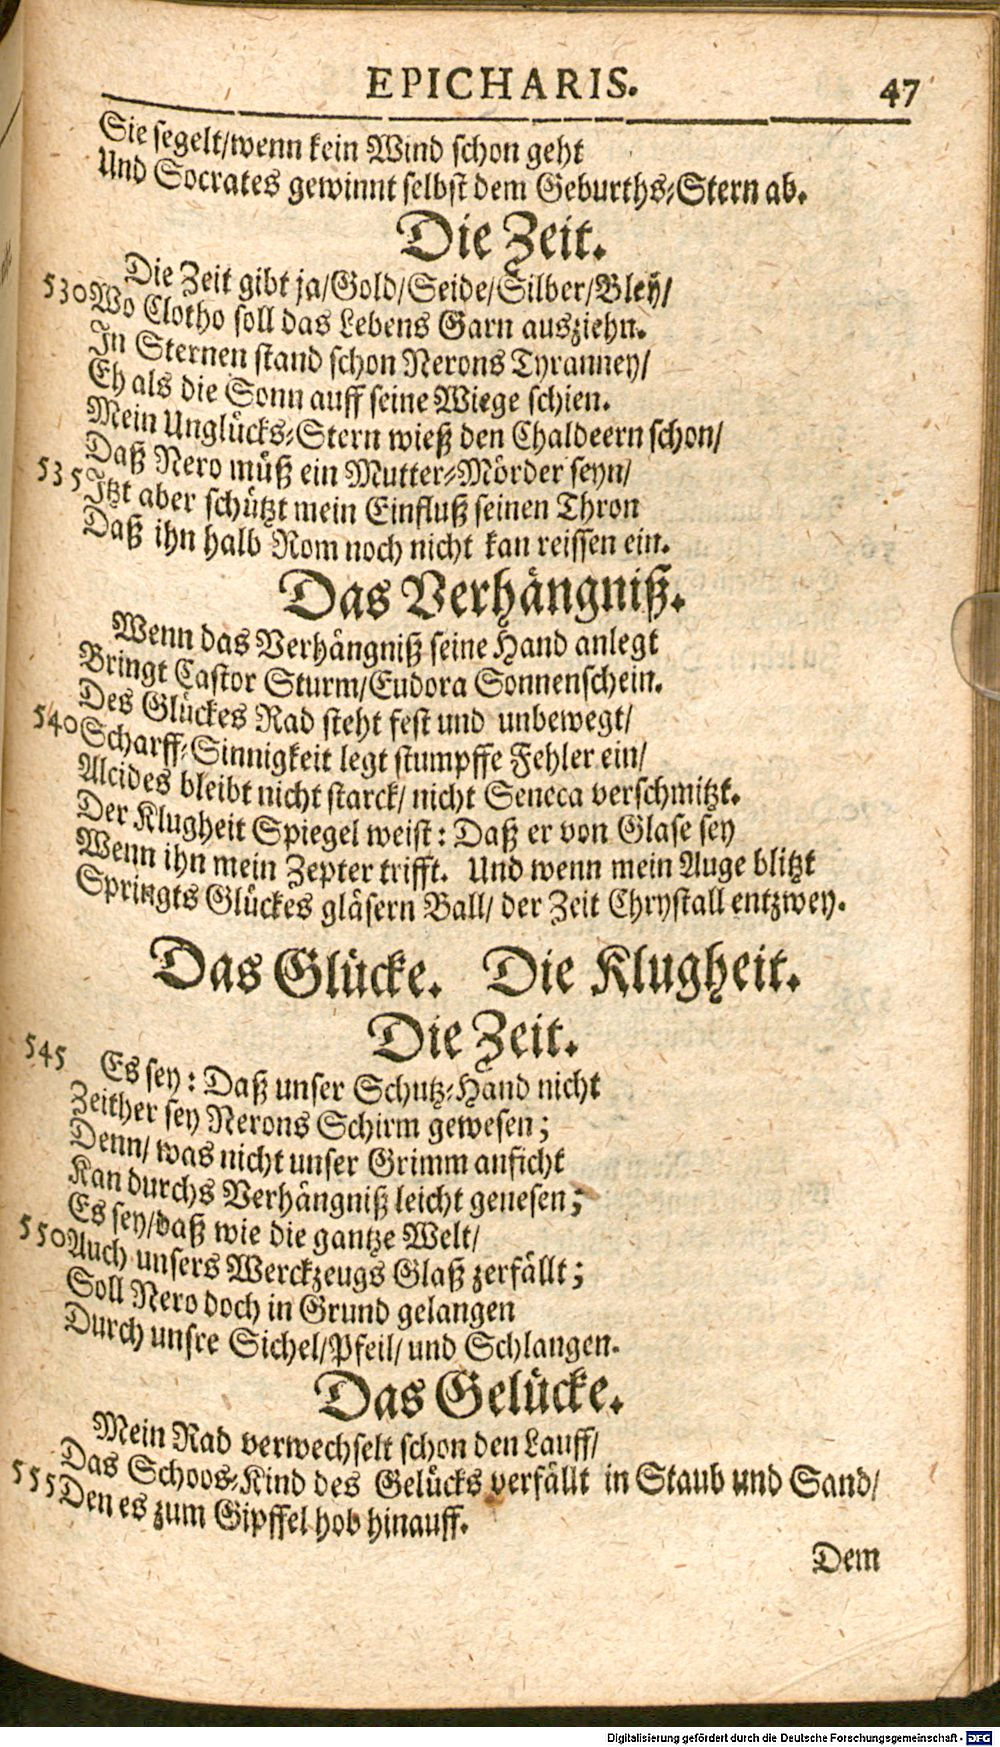 EPICHARIS. 47
Sie segelt/wenn kein Wind schon geht
Und Socrates gewinnt selbst dem Geburths-Stern ab.
Die Zeit.
Die Zeit gibt ja/Gold/Seide/Silber/Bley/
530 Wo Clotho soll das Lebens Garn ausziehn.
In Sternen stand schon Nerons Tyranney/
Eh als die Sonn auff seine Wiege schien.
Mein Unglücks-Stern wieß den Chaldeern schon/
Daß Nero müß ein Mutter-Mörder seyn/
535 Itzt aber schützt mein Einfluß seinen Thron
Daß ihn halb Rom noch nicht kan reissen ein.
Das Verhängniß.
Wenn das Verhängniß seine Hand anlegt
Bringt Castor Sturm/Eudora Sonnenschein.
Des Glückes Rad steht fest und unbewegt/
540 Scharff-Sinnigkeit legt stumpffe Fehler ein/
Alcides bleibt nicht starck/ nicht Seneca verschmitzt.
Der Klugheit Spiegel weist: Daß er von Glase sey
Wenn ihn mein Zepter trifft. Und wenn mein Auge blitzt
Springts Glückes gläsern Ball/ der Zeit Chrystall entzwey.
Das Glücke. Die Klugheit.
Die Zeit.
545 Es sey: Daß unser Schutz-Hand nicht
Zeither sey Nerons Schirm gewesen;
Denn/ was nicht unser Grimm anficht
Kan durchs Verhängniß leicht genesen;
Es sey/daß wie die gantze Welt/
550 Auch unsers Werckzeugs Glaß zerfällt;
Soll Nero doch in Grund gelangen
Durch unsre Sichel/Pfeil/ und Schlangen.
Das Gelücke.
Mein Rad verwechselt schon den Lauff/
Das Schoos-Kind des Gelücks verfällt in Staub und Sand/
555 Den es zum Gipffel hob hinauff.
Dem
Digitalisierung gefördert durch die Deutsche Forschungsgemeinschaft - DFG